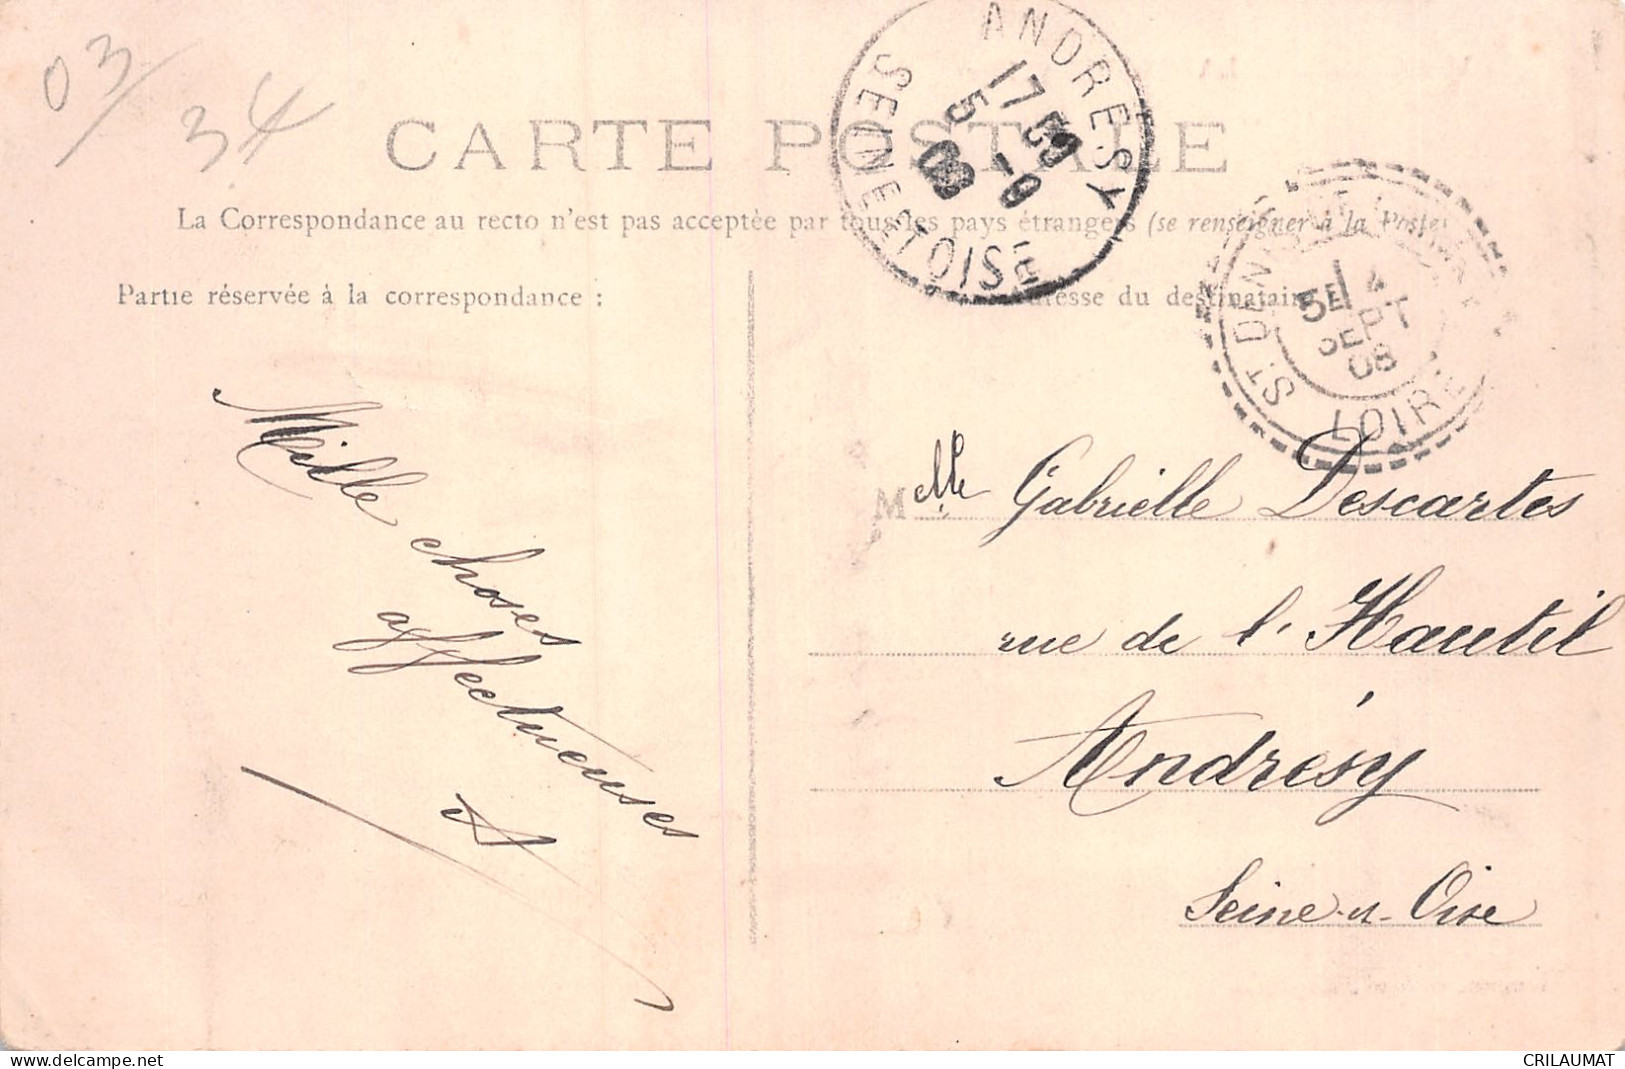 03
34
CARTE POSTALE
La Correspondance au recto n'est pas acceptée par tous les pays étrangers (se renseigner à la Poste)
Partie réservée à la correspondance :
Adresse du destinataire
ANDRESY
17 5
5 -9
08
SEINE-ET-OISE
ST DENIS
5E 4
SEPT
08
LOIRE
Mille choses
affectueuses
A
M elle Gabrielle Descartes
rue de l'Hautil
Andrésy
Seine-et-Oise
www.delcampe.net
CRILAUMAT